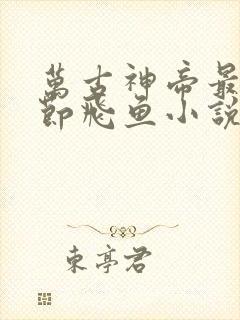 萬古神帝最
節飛魚小說
東亭君